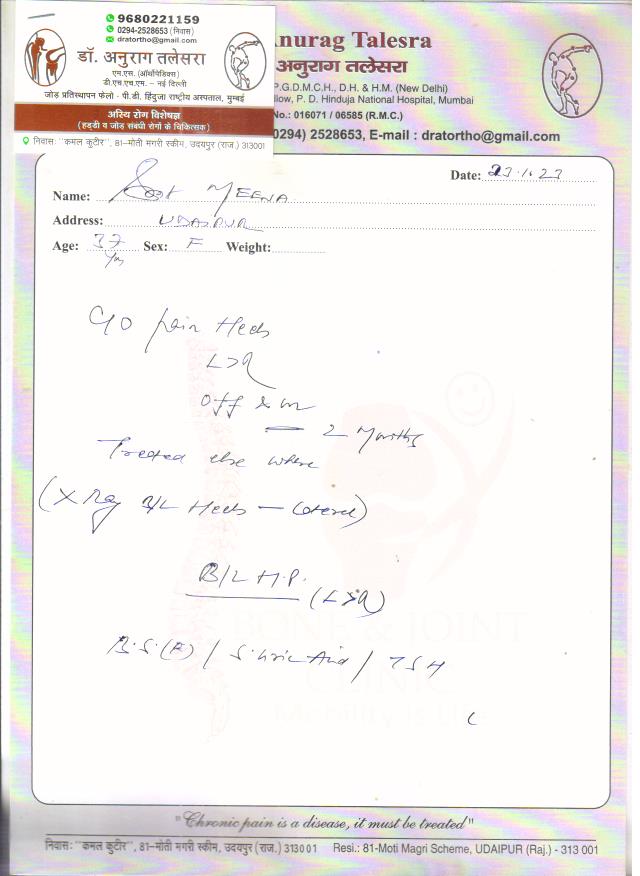 9680221159
0294-2528653 (निवास)
dratortho@gmail.com
डॉ. अनुराग तलेसरा
एम.एस. (ऑर्थोपेडिक्स)
डी.एच.एच.एम. – नई दिल्ली
जोड़ प्रतिस्थापन फेलो - पी.डी. हिंदुजा राष्ट्रीय अस्पताल, मुम्बई
अस्थि रोग विशेषज्ञ
(हड्डी व जोड़ संबंधी रोगों के चिकित्सक)
निवास: "कमल कुटीर", 81–मोती मगरी स्कीम, उदयपुर (राज.) 313001
Anurag Talesra
अनुराग तलेसरा
P.G.D.M.C.H., D.H. & H.M. (New Delhi)
llow, P. D. Hinduja National Hospital, Mumbai
No.: 016071 / 06585 (R.M.C.)
0294) 2528653, E-mail : dratortho@gmail.com
Date: 23.1.23
Name: MEENA
Address: UDAIPUR
Age: 37 Yrs Sex: F Weight:
C/O pain Heels
L>R
Off & on
— 2 Months
Treated else where
(X Ray B/L Heels –
B/L H.P.
(L>R)
B.S.(F) / S. Uric Acid / TSH
BONE & JOINT
CLINIC
Mobility is Life
"Chronic pain is a disease, it must be treated"
निवास: "कमल कुटीर", 81–मोती मगरी स्कीम, उदयपुर (राज.) 313001 Resi.: 81-Moti Magri Scheme, UDAIPUR (Raj.) - 313 001